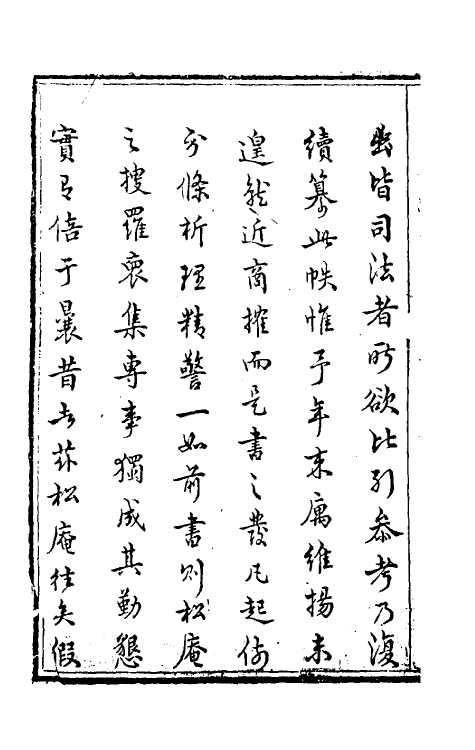 幽皆司法者所欲比引參考乃復
續纂此帙惟予年來寓維揚未
遑就近商搉而是書之發凡起例
分條析理精警一如前書則松庵
之搜羅裒集專事獨成其勤懇
實有倍于曩昔者茲松庵往矣假